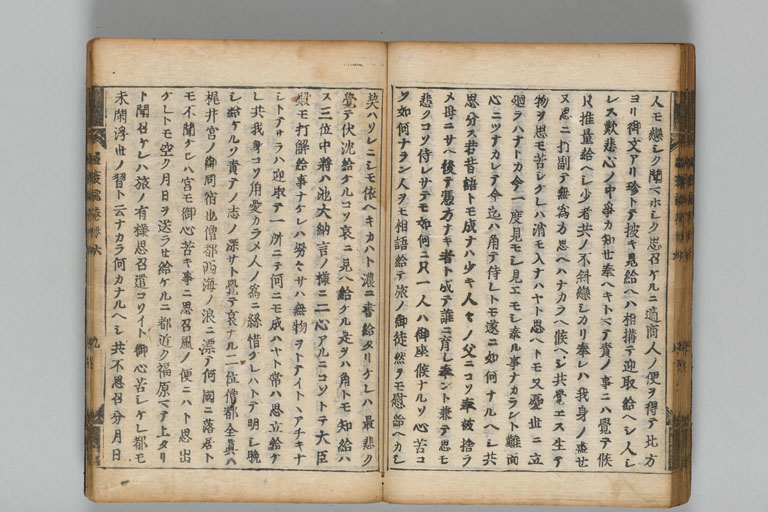 人モ戀シク聞マホシク思召ケルニ適商人ノ便ヲ得テ北方
ヨリ御文アリ珍トテ披キ見給ヘハ相構テ迎取給ヘシ人シ
レス歎悲心ノ中爭カ知セ奉ヘキトマテ責ノ事ニハ覺テ候
只推量給ヘシ少者共ノ不斜戀シカリ奉レハ我身ノ盡セ
ヌ思ニ打副テ無爲方思ヘハナカラヘ候ヘシ共覺エス生テ
物ヲ思モ苦シケレハ消モ入ナハヤト思ヘトモ又憂世ニ立
廻ラハナトカ今一度見モシ見エモシ奉ル事ナカラント難面
心ニツナカレテ今迄ハ角テ侍レトモ遂ニ如何ナルヘシ共
思分ス君昔語トモ成ナハ少キ人々ノ父ニコソ奉被捨ラ
メ母ニサヘ後テ憑方ナキ者ト成テ誰ニ育レ奉ント兼テ思モ
悲クコソ侍レサテモ如何ニ只一人ハ御座候ナルソ心苦コ
ソ如何ナラン人ヲモ相語給テ旅ノ御徒然ヲモ慰給ヘカシ
契ハソレニシモ依ヘキカハト濃ニ書給タリケレハ最悲ク
覺テ伏沈給ケルコソ哀ニ見ヘ給ケル是ヲハ角トモ知給ハ
ス三位中將ハ池大納言ノ樣ニ二心アルニコソトテ大臣
殿モ打解給事ナケレハ努々サハ無物ヲトテイトヽアチキナ
シトアサラハ迎取テ一所ニテ何ニモ成ハヤト常ハ思立給ケ
レ共我身コソ角憂カラメ人ノ爲ニ絲惜ケレハトテ明シ晩
シ給ケルソ責テノ志ノ深サト覺テ哀ナル二位僧都全眞ハ
梶井宮ノ御同宿也僧都西海ノ浪ニ漂テ何國ニ落居ト
モ不聞ケレハ宮モ御心苦キ事ニ思召風ノ便ニハト思出
ケレトモ空ク月日ヲ送ラセ給ケルニ都近ク福原マテ上タリ
ト聞召ケレハ旅ノ有樣思召遣コソイトヽ御心苦シケレ都モ
未閑浮世ノ習ト云ナカラ何カナルヘシ共不思召分月日